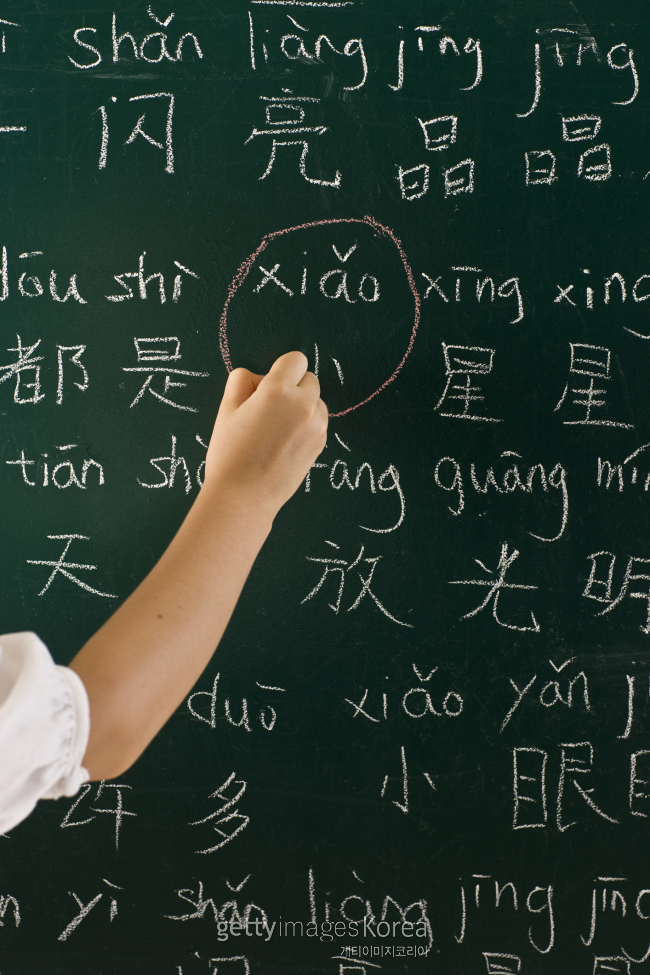 shǎn liàng jīng jīng
一 闪 亮 晶 晶
dōu shì xiǎo xīng xing
都 是 小 星 星
tiān fàng guāng
天 放 光 明
duō xiǎo yǎn
许 多 小 眼
yì shǎn liàng jīng jīng
gettyimagesKorea
게티이미지코리아